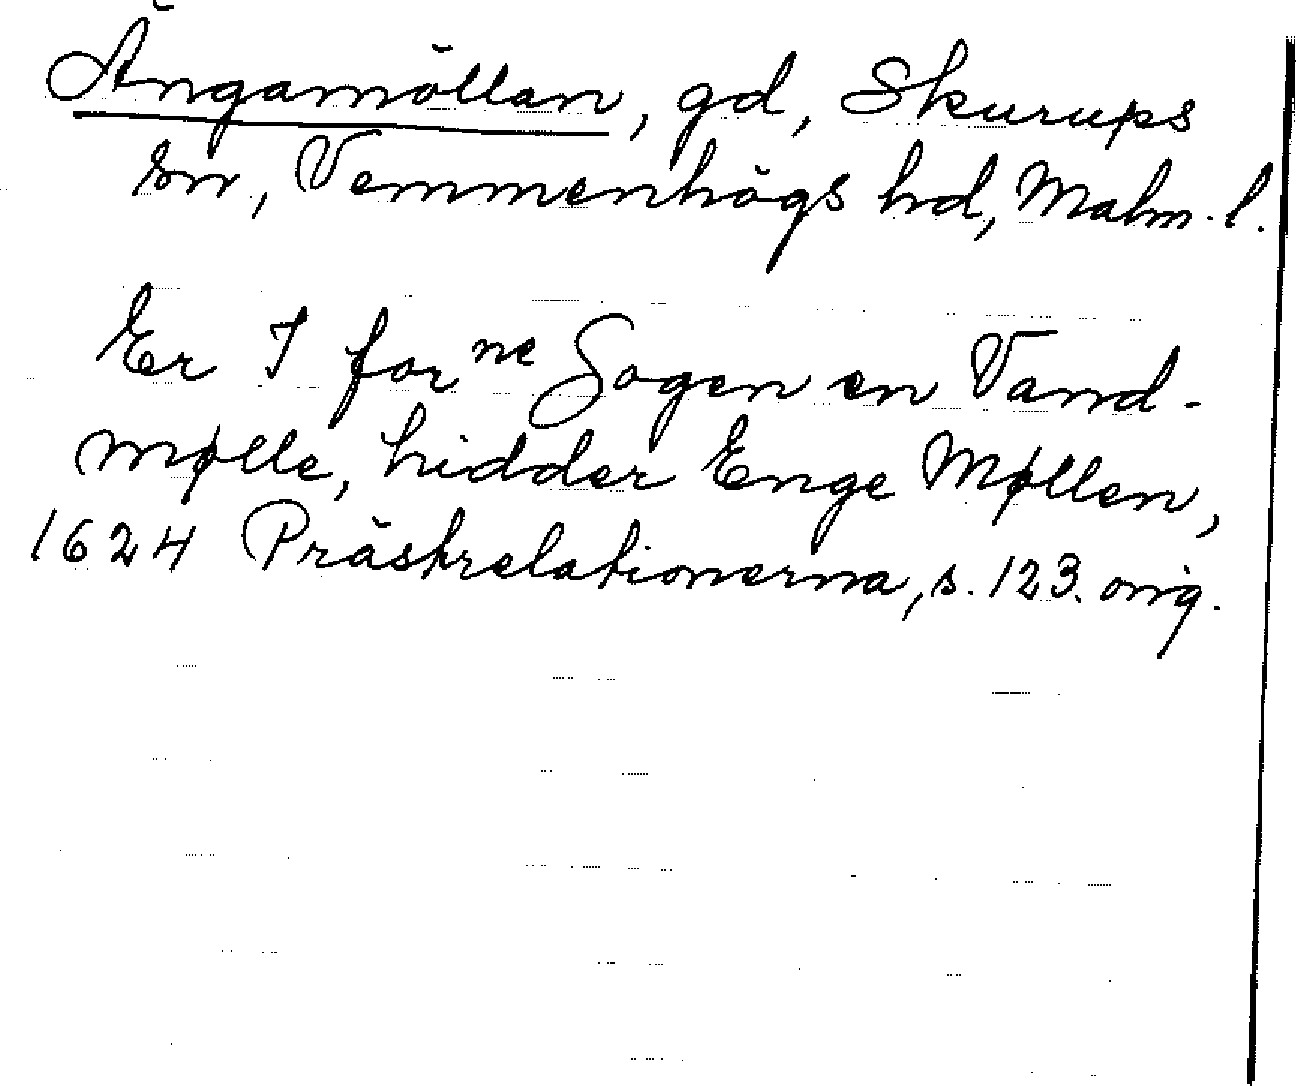 Ängamöllan, gd, Skurups
sn, Vemmenhögs hd, Malm. l.
Er I for ne Sogen en Vand-
mølle, hidder Enge Møllen,
1624 Prästrelationerna, s. 123. orig.